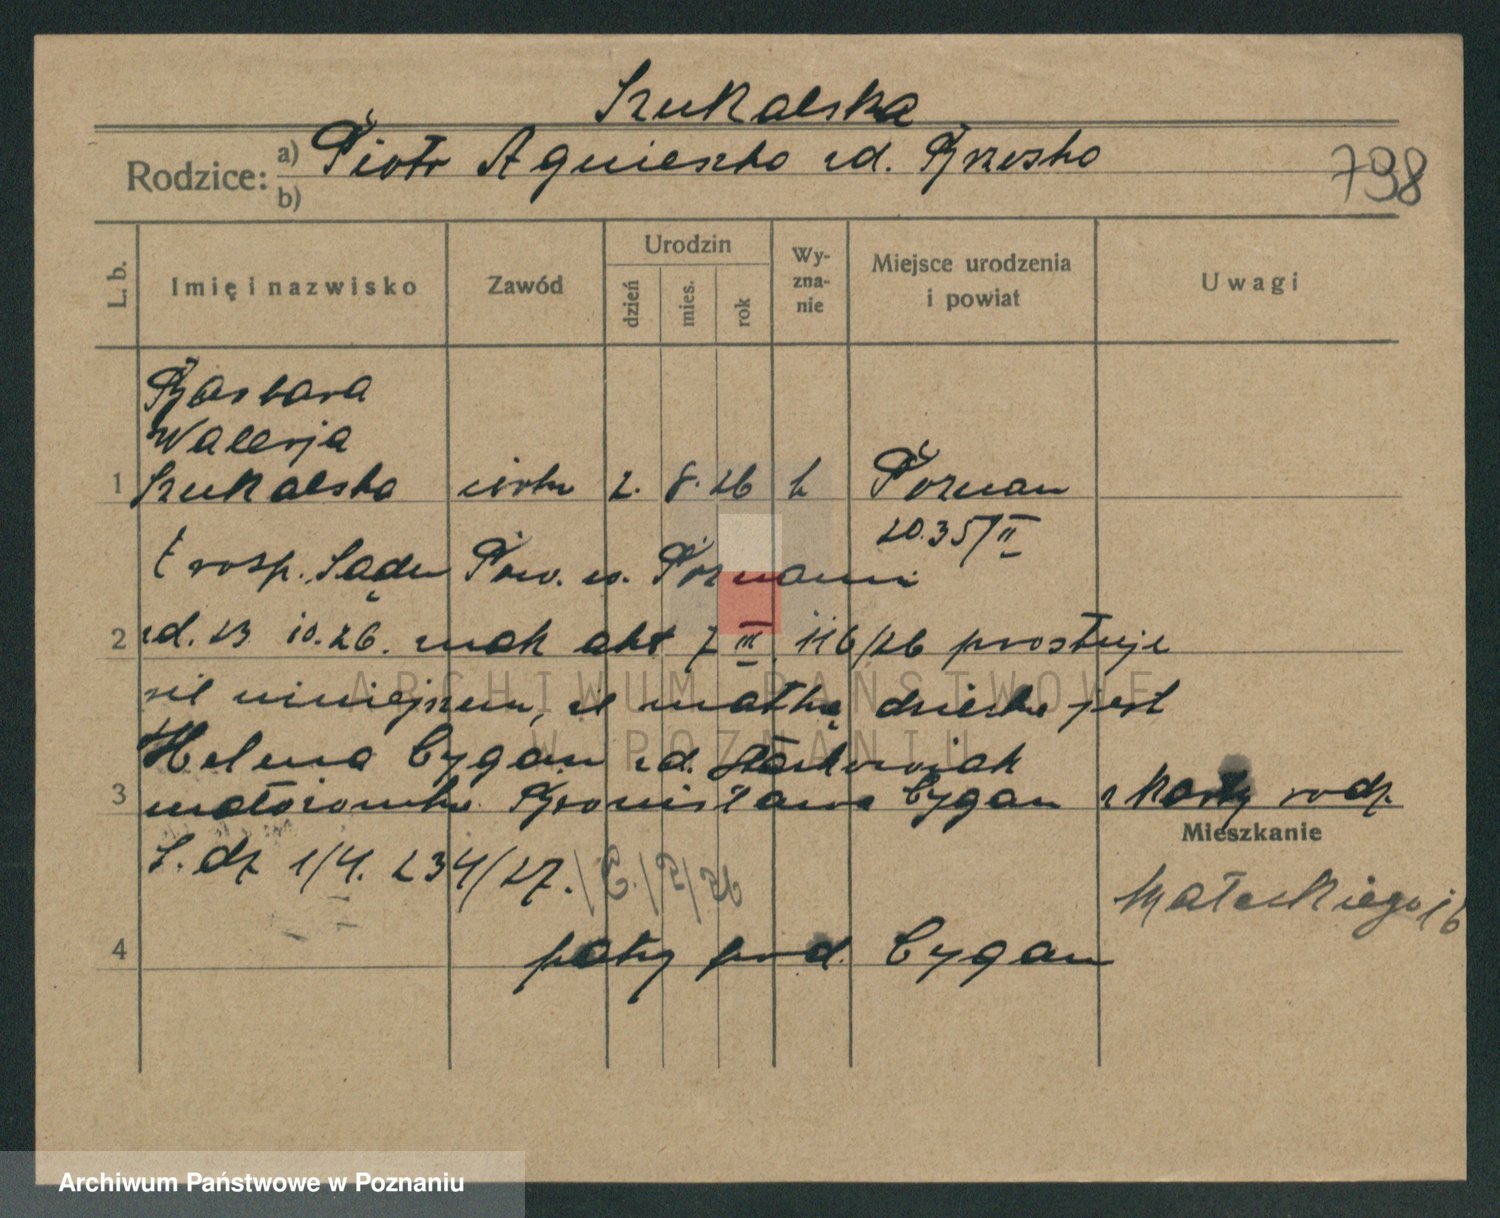 Szukalska
Rodzice: a) Piotr Agnieszka zd. Brzeska
b)
798
L. b. Imię i nazwisko Zawód Urodzin dzień mies. rok Wy-zna-nie Miejsce urodzenia i powiat Uwagi
Barbara
Walerja
1 Szukalska córka 2. 8. 26 k Poznań
20.35/II
rosp. Sądu Pow. w Poznaniu
2 zd. 23 10.26. znak akt 7 III 116/26 prostuje
się niniejszem, że matką dziecka jest
Helena Cygan zd. Stachowiak
3 małżonka Bronisława Cygan z karty rodz.
Mieszkanie
L. dz 1/4. 234/27.
Małeckiego 16
4 patrz pod. Cygan
ARCHIWUM PAŃSTWOWE
W POZNANIU
Archiwum Państwowe w Poznaniu